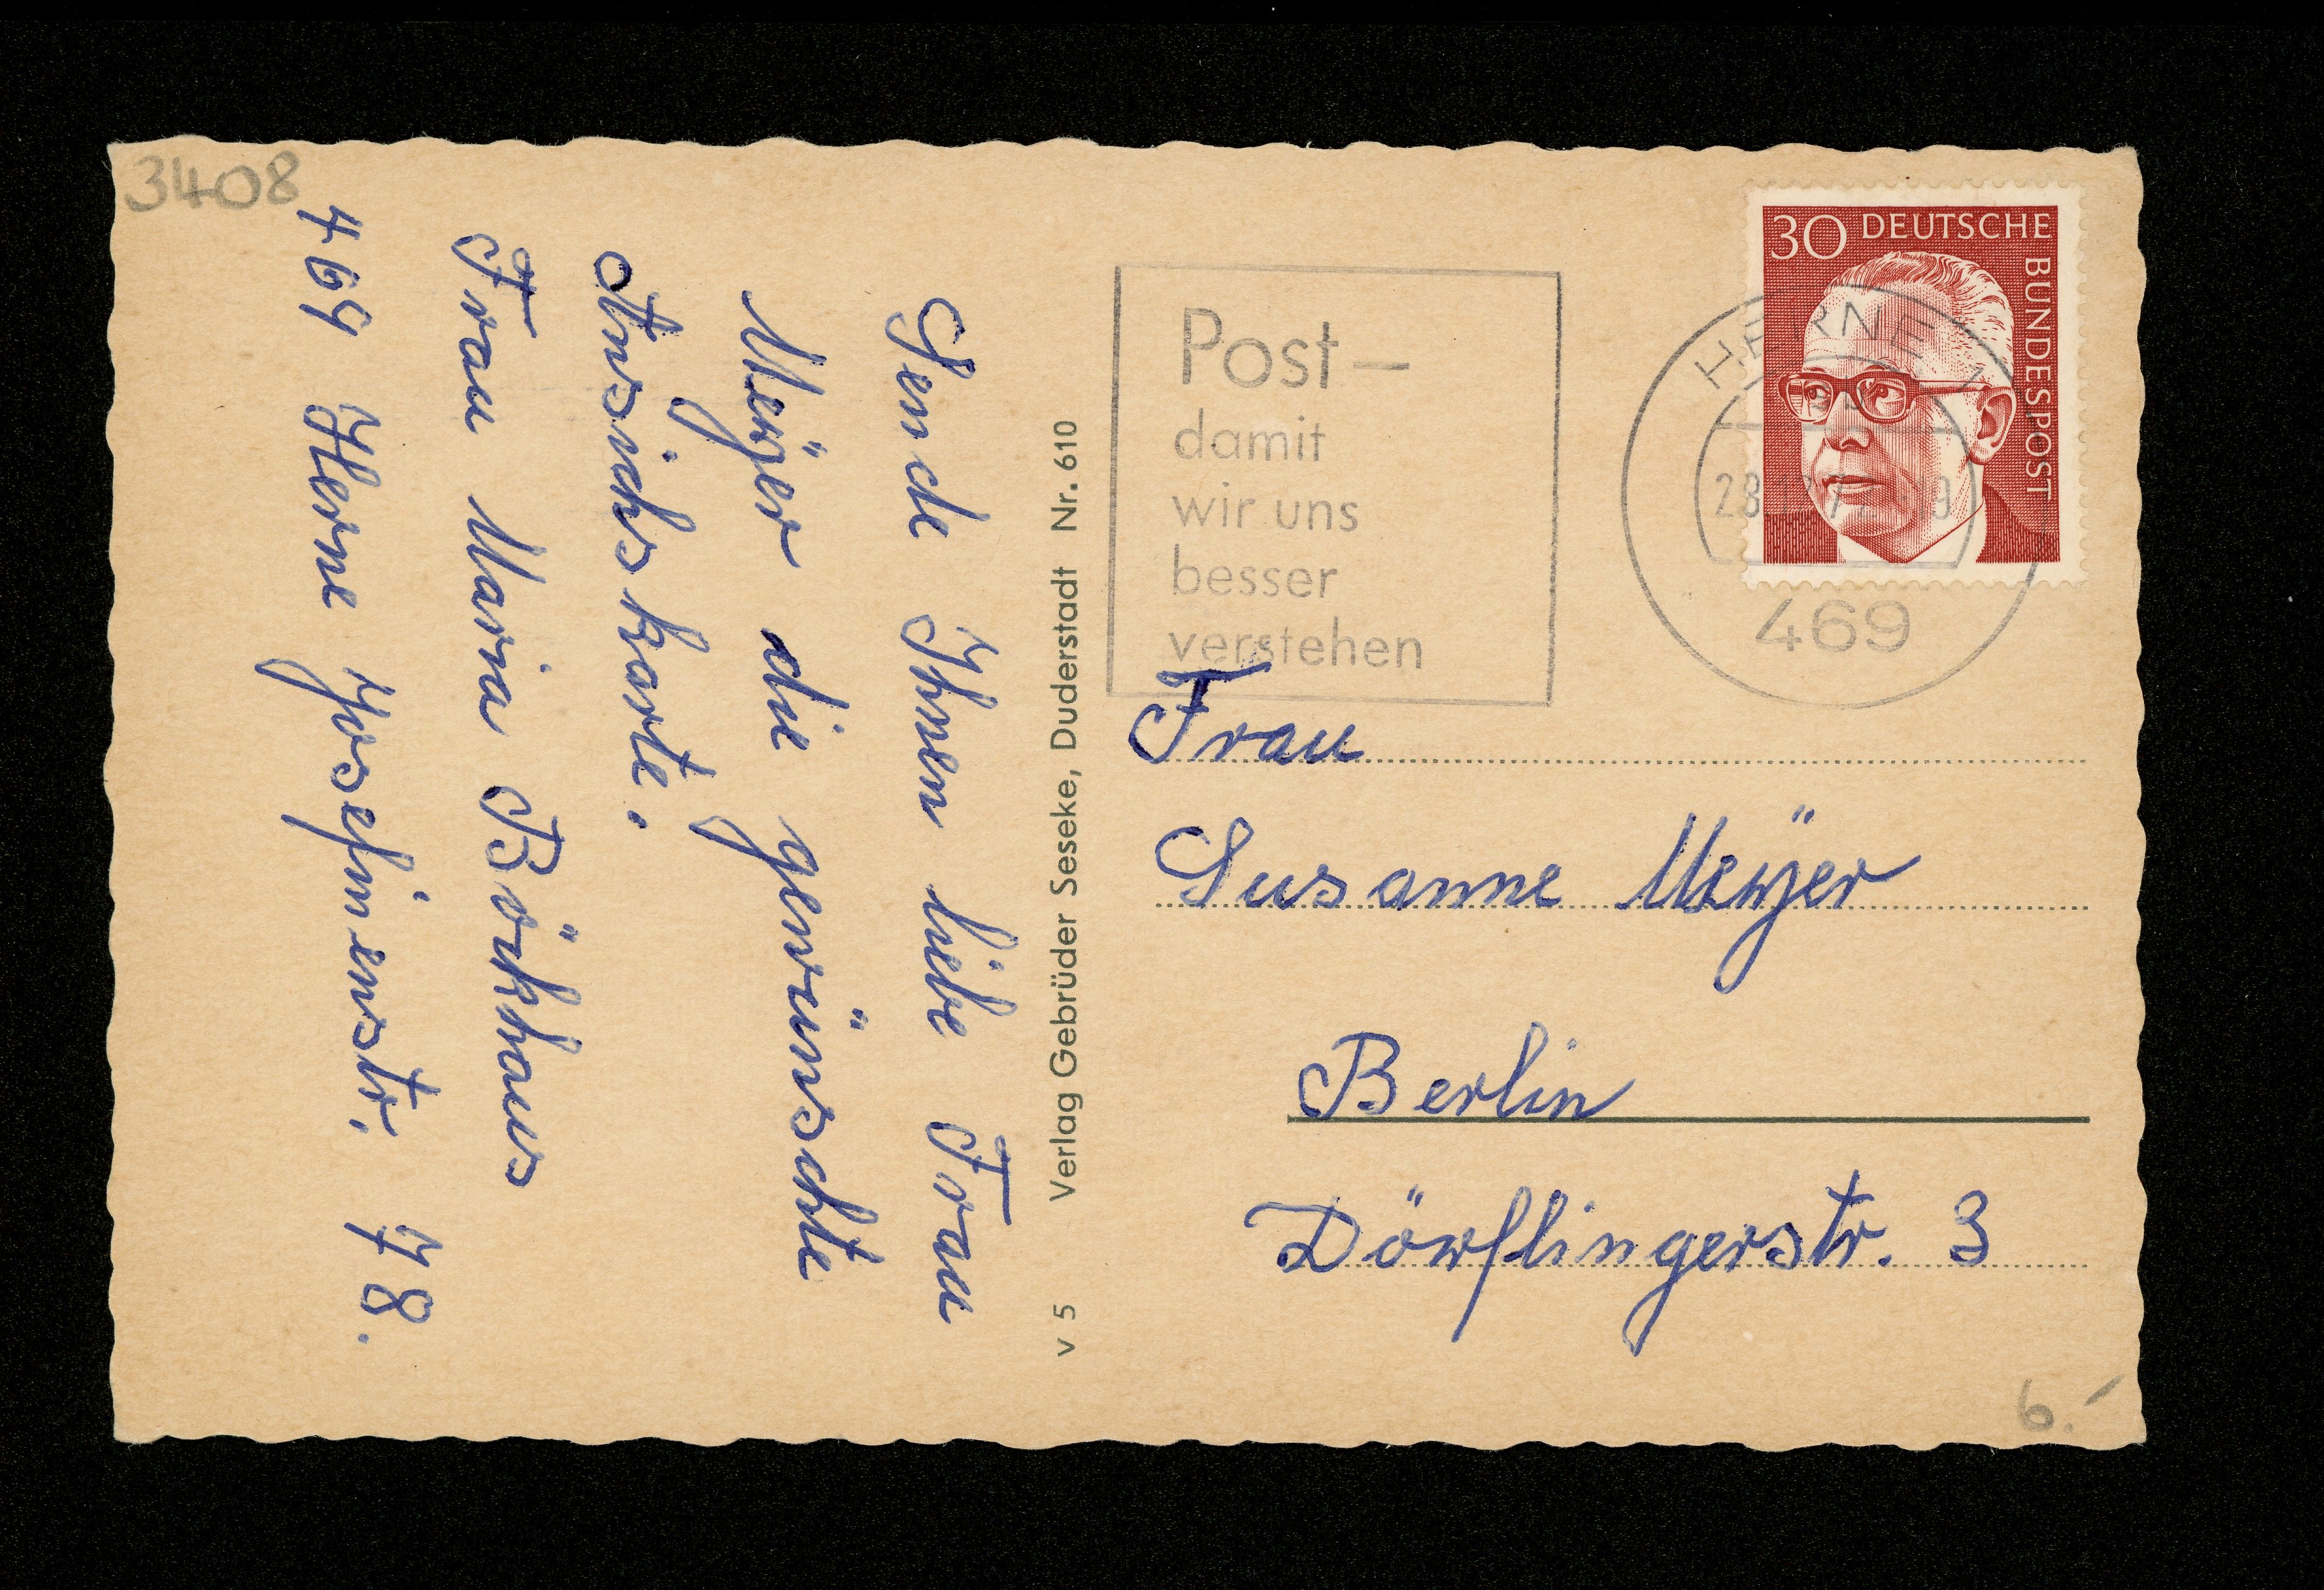 3408
Sende Ihnen liebe Frau
Meÿer die gewünschte
Ansichskarte.
Frau Maria Börkhaus
469 Herne Josefinenstr. 78.
Verlag Gebrüder Seseke, Duderstadt Nr. 610
v 5
Post –
damit
wir uns
besser
verstehen
HERNE 1
469
30 DEUTSCHE
BUNDESPOST
Frau
Susanne Meÿer
Berlin
Dörflingerstr. 3
6.-